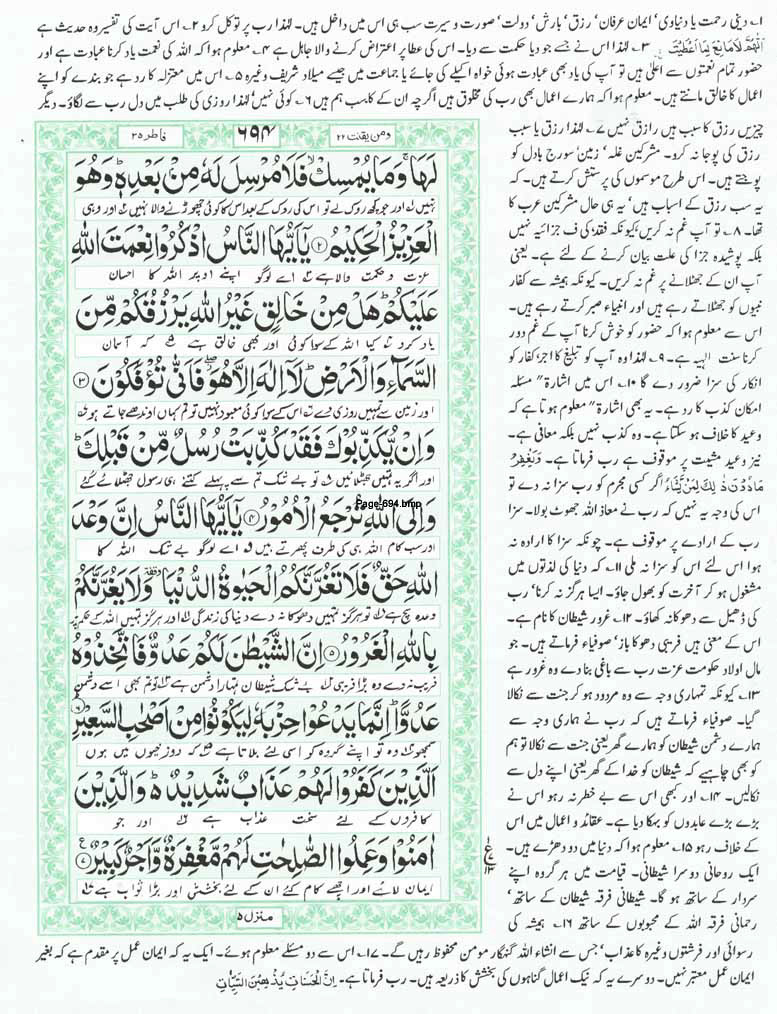 ۱۔ دینی رحمت یا دنیاوی' ایمان عرفان' رزق' بارش' دولت' صورت و سیرت سب ہی اس میں داخل ہیں۔ لہٰذا رب پر توکل کرو ۲۔ اس آیت کی تفسیر وہ حدیث ہے
اَللّٰهُمَّ لَا مَانِعَ لِمَا اَعْطَيْتَ ۳۔ لہٰذا اس نے جسے جو دیا حکمت سے دیا۔ اس کی عطا پر اعتراض کرنے والا جاہل ہے ۴۔ معلوم ہوا کہ اللہ کی نعمت یاد کرنا عبادت ہے اور
حضور تمام نعمتوں سے اعلیٰ ہیں تو آپ کی یاد بھی عبادت ہوئی خواہ اکیلے کی جائے یا جماعت میں جیسے میلاد شریف وغیرہ ۵۔ اس میں معتزلہ کا رد ہے جو بندے کو اپنے
اعمال کا خالق مانتے ہیں۔ معلوم ہوا کہ ہمارے اعمال بھی رب کی مخلوق ہیں اگرچہ ان کے کاسب ہم ہیں ۶۔ کوئی نہیں' لہٰذا روزی کی طلب میں دل رب سے لگاؤ۔ دیگر
چیزیں رزق کا سبب ہیں رازق نہیں ۷۔ لہٰذا رزق یا سبب
رزق کی پوجا نہ کرو۔ مشرکین غلہ' زمین' سورج بادل کو
پوجتے ہیں۔ اس طرح موسموں کی پرستش کرتے ہیں۔ کہ
یہ سب رزق کے اسباب ہیں' یہ ہی حال مشرکین عرب کا
تھا۔ ۸۔ تو آپ غم نہ کریں' کیونکہ فقد کی ف جزائیہ نہیں
بلکہ پوشیدہ جزا کی علت بیان کرنے کے لئے ہے۔ یعنی
آپ ان کے جھٹلانے پر غم نہ کریں۔ کیونکہ ہمیشہ سے کفار
نبیوں کو جھٹلاتے رہے ہیں اور انبیاء صبر کرتے رہے ہیں۔
اس سے معلوم ہوا کہ حضور کو خوش کرنا آپ کے غم دور
کرنا سنت الہیہ ہے۔ ۹۔ لہٰذا وہ آپ کو تبلیغ کا اجر' کفار کو
انکار کی سزا ضرور دے گا ۱۰۔ اس میں اشارۃً مسئلہ
امکان کذب کا رد ہے۔ یہ بھی اشارۃً معلوم ہوتا ہے کہ
وعید کا خلاف ہو سکتا ہے۔ وہ کذب نہیں بلکہ معافی ہے۔
نیز وعید مشیت پر موقوف ہے رب فرماتا ہے۔ وَيَغْفِرُ
مَا دُوْنَ ذٰلِكَ لِمَنْ يَّشَآءُ اگر کسی مجرم کو رب سزا نہ دے تو
اس کی وجہ یہ نہیں کہ رب نے معاذ اللہ جھوٹ بولا۔ سزا
رب کے ارادے پر موقوف ہے۔ چونکہ سزا کا ارادہ نہ
ہوا اس لئے اس کو سزا نہ ملی ۱۱۔ کہ دنیا کی لذتوں میں
مشغول ہو کر آخرت کو بھول جاؤ۔ ایسا ہرگز نہ کرنا' رب
کی ڈھیل سے دھوکا نہ کھاؤ۔ ۱۲۔ غرور شیطان کا نام ہے۔
اس کے معنی ہیں فریبی دھوکا باز' صوفیاء فرماتے ہیں۔ جو
مال اولاد حکومت عزت رب سے باغی بنا دے وہ غرور ہے
۱۳۔ کیونکہ تمہاری وجہ سے وہ مردود ہو کر جنت سے نکالا
گیا۔ صوفیاء فرماتے ہیں کہ رب نے ہماری وجہ سے
ہمارے دشمن شیطان کو ہمارے گھر یعنی جنت سے نکالا تو ہم
کو بھی چاہیے کہ شیطان کو خدا کے گھر یعنی اپنے دل سے
نکالیں۔ ۱۴۔ اور کبھی اس سے بے خطر نہ رہو اس نے
بڑے بڑے عابدوں کو بہکا دیا ہے۔ عقائد و اعمال میں اس
کے خلاف رہو ۱۵۔ معلوم ہوا کہ دنیا میں دو دھڑے ہیں۔
ایک روحانی دوسرا شیطانی۔ قیامت میں ہر گروہ اپنے
سردار کے ساتھ ہو گا۔ شیطانی فرقہ شیطان کے ساتھ'
رحمانی فرقہ اللہ کے محبوبوں کے ساتھ ۱۶۔ ہمیشہ کی
رسوائی اور فرشتوں وغیرہ کا عذاب' جس سے انشاء اللہ گنہگار مومن محفوظ رہیں گے۔ ۱۷۔ اس سے دو مسئلے معلوم ہوئے۔ ایک یہ کہ ایمان عمل پر مقدم ہے کہ بغیر
ایمان عمل معتبر نہیں۔ دوسرے یہ کہ نیک اعمال گناہوں کی بخشش کا ذریعہ ہیں۔ رب فرماتا ہے۔ اِنَّ الْحَسَنٰتِ يُذْهِبْنَ السَّيِّاٰتِ
ومن یقنت ۲۲
۶۹۴
فاطر ۳۵
لَهَا ۚ وَمَا يُمْسِكْ ۙ فَلَا مُرْسِلَ لَهٗ مِنْۢ بَعْدِهٖ ؕ وَهُوَ
نہیں لہ اور جو کچھ روک لے تو اس کی روک کے بعد اس کا کوئی چھوڑنے والا نہیں اور وہی
الْعَزِيْزُ الْحَكِيْمُ ۲ يٰۤاَيُّهَا النَّاسُ اذْكُرُوْا نِعْمَتَ اللّٰهِ
عزت و حکمت والا ہے اے لوگو اپنے اوپر اللہ کا احسان
عَلَيْكُمْ ؕ هَلْ مِنْ خَالِقٍ غَيْرُ اللّٰهِ يَرْزُقُكُمْ مِّنَ
یاد کرو کیا اللہ کے سوا کوئی اور بھی خالق ہے کہ آسمان
السَّمَآءِ وَالْاَرْضِ ؕ لَاۤ اِلٰهَ اِلَّا هُوَ ۖ فَاَنّٰى تُؤْفَكُوْنَ ۳
اور زمین سے تمہیں روزی دے اس کے سوا کوئی معبود نہیں تو تم کہاں اوندھے جاتے ہو
وَاِنْ يُّكَذِّبُوْكَ فَقَدْ كُذِّبَتْ رُسُلٌ مِّنْ قَبْلِكَ ؕ
اور اگر یہ تمہیں جھٹلائیں تو بے شک تم سے پہلے کتنے ہی رسول جھٹلائے گئے
وَاِلَى اللّٰهِ تُرْجَعُ الْاُمُوْرُ ۴ يٰۤاَيُّهَا النَّاسُ اِنَّ وَعْدَ
Page-694.bmp
اور سب کام اللہ ہی کی طرف پھرتے ہیں اے لوگو بے شک اللہ کا
اللّٰهِ حَقٌّ فَلَا تَغُرَّنَّكُمُ الْحَيٰوةُ الدُّنْيَا ۥ وَلَا يَغُرَّنَّكُمْ
وعدہ سچ ہے تو ہرگز تمہیں دھوکا نہ دے دنیا کی زندگی اور ہرگز تمہیں اللہ کے حکم پر
بِاللّٰهِ الْغَرُوْرُ ۵ اِنَّ الشَّيْطٰنَ لَكُمْ عَدُوٌّ فَاتَّخِذُوْهُ
فریب نہ دے وہ بڑا فریبی بے شک شیطان تمہارا دشمن ہے تو تم بھی اسے دشمن
عَدُوًّا ؕ اِنَّمَا يَدْعُوْا حِزْبَهٗ لِيَكُوْنُوْا مِنْ اَصْحٰبِ السَّعِيْرِ ۶
سمجھو وہ تو اپنے گروہ کو اسی لئے بلاتا ہے کہ دوزخیوں میں ہوں
اَلَّذِيْنَ كَفَرُوْا لَهُمْ عَذَابٌ شَدِيْدٌ ؕ وَالَّذِيْنَ
کافروں کے لئے سخت عذاب ہے اور جو
اٰمَنُوْا وَعَمِلُوا الصّٰلِحٰتِ لَهُمْ مَّغْفِرَةٌ وَّاَجْرٌ كَبِيْرٌ ۷
ایمان لائے اور اچھے کام کئے ان کے لئے بخشش اور بڑا ثواب ہے
منزل ۵